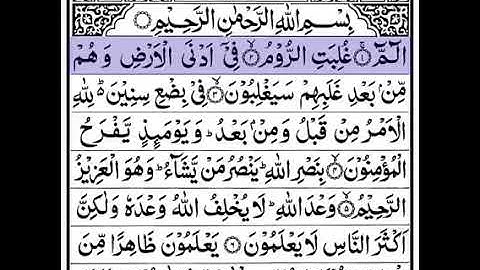 بِسْمِ اللهِ الرَّحْمٰنِ الرَّحِيْمِ
الٓمّٓ ۝١ غُلِبَتِ الرُّوْمُ ۝٢ فِيْٓ اَدْنَى الْاَرْضِ وَهُمْ
مِّنْۢ بَعْدِ غَلَبِهِمْ سَيَغْلِبُوْنَ ۝٣ فِيْ بِضْعِ سِنِيْنَ ۬ؕ لِلّٰهِ
الْاَمْرُ مِنْ قَبْلُ وَمِنْۢ بَعْدُ ؕ وَيَوْمَىِٕذٍ يَّفْرَحُ
الْمُؤْمِنُوْنَ ۝٤ بِنَصْرِ اللهِ ؕ يَنْصُرُ مَنْ يَّشَآءُ ؕ وَهُوَ الْعَزِيْزُ
الرَّحِيْمُ ۝٥ وَعْدَ اللهِ ؕ لَا يُخْلِفُ اللهُ وَعْدَهٗ وَلٰكِنَّ
اَكْثَرَ النَّاسِ لَا يَعْلَمُوْنَ ۝٦ يَعْلَمُوْنَ ظَاهِرًا مِّنَ